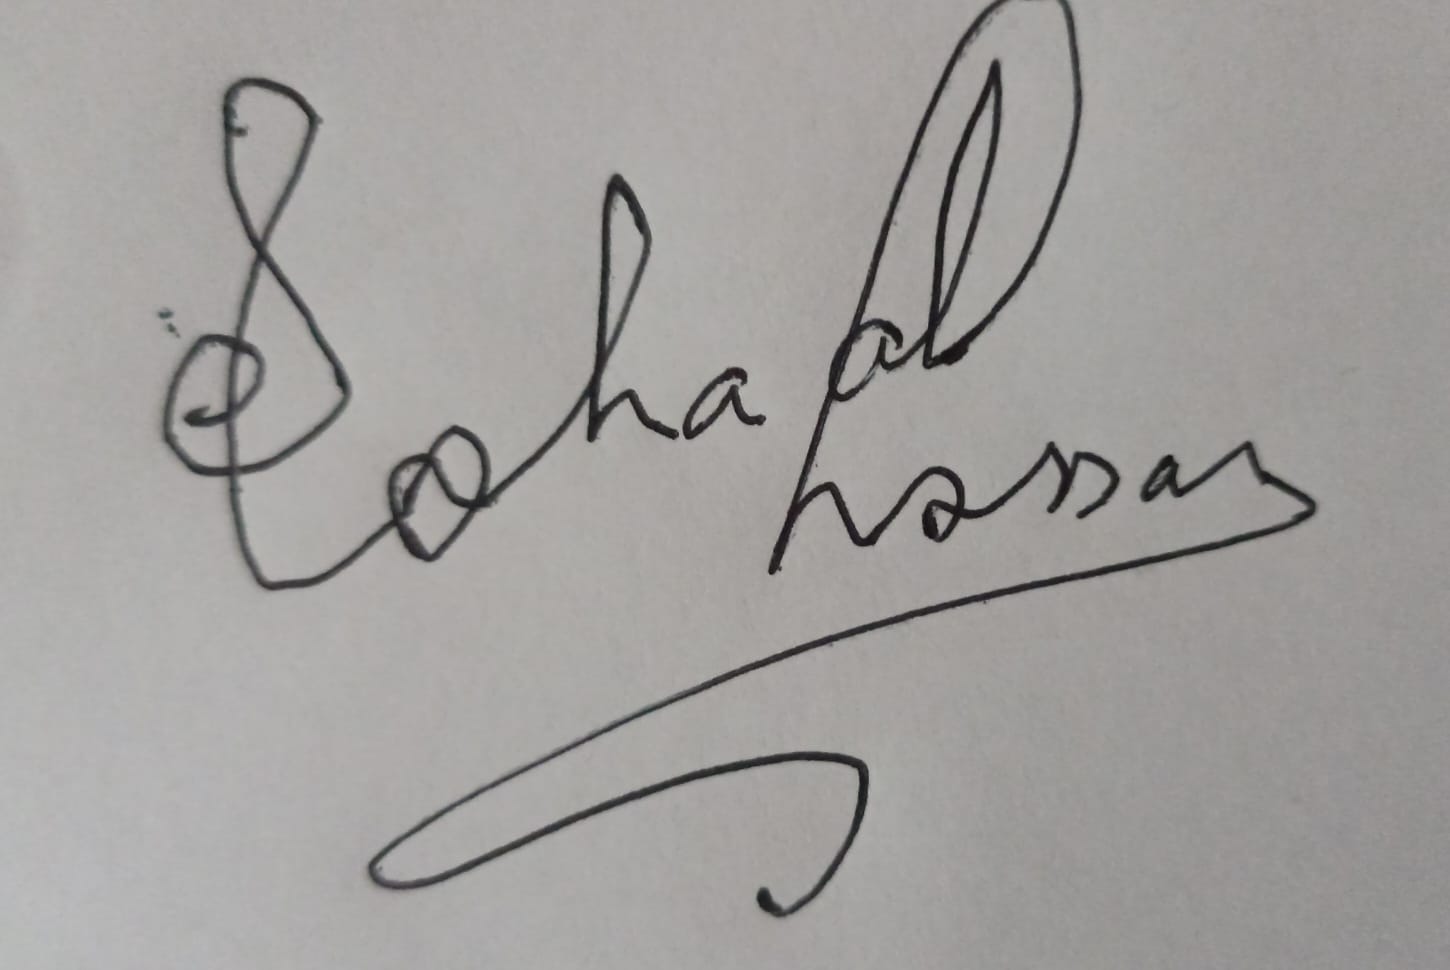 Soha al
hassan